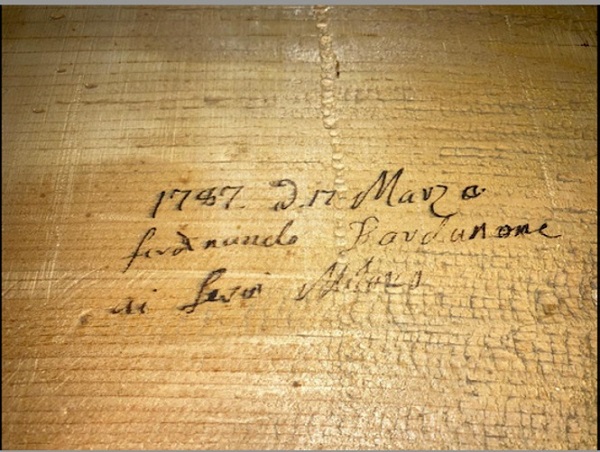 1787. D.17 Marzo
ferdinando Bardunone
di